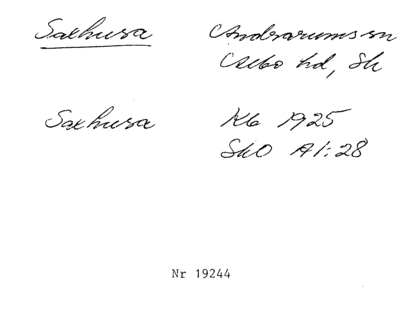 Saxhusa Andrarums sn
Albo hd, Sk
Saxhusa Kb 1925
SkO A1:28
Nr 19244